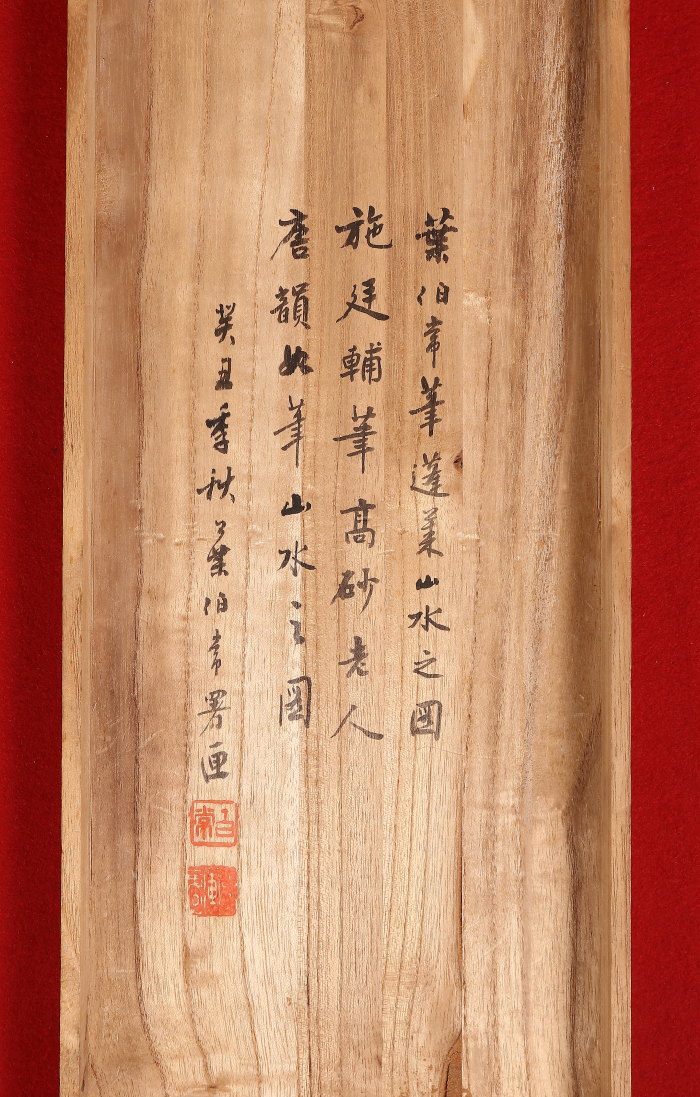 葉伯常筆蓬萊山水之図
施廷輔筆高砂老人
唐韻如筆山水之図
癸丑季秋葉伯常署匣